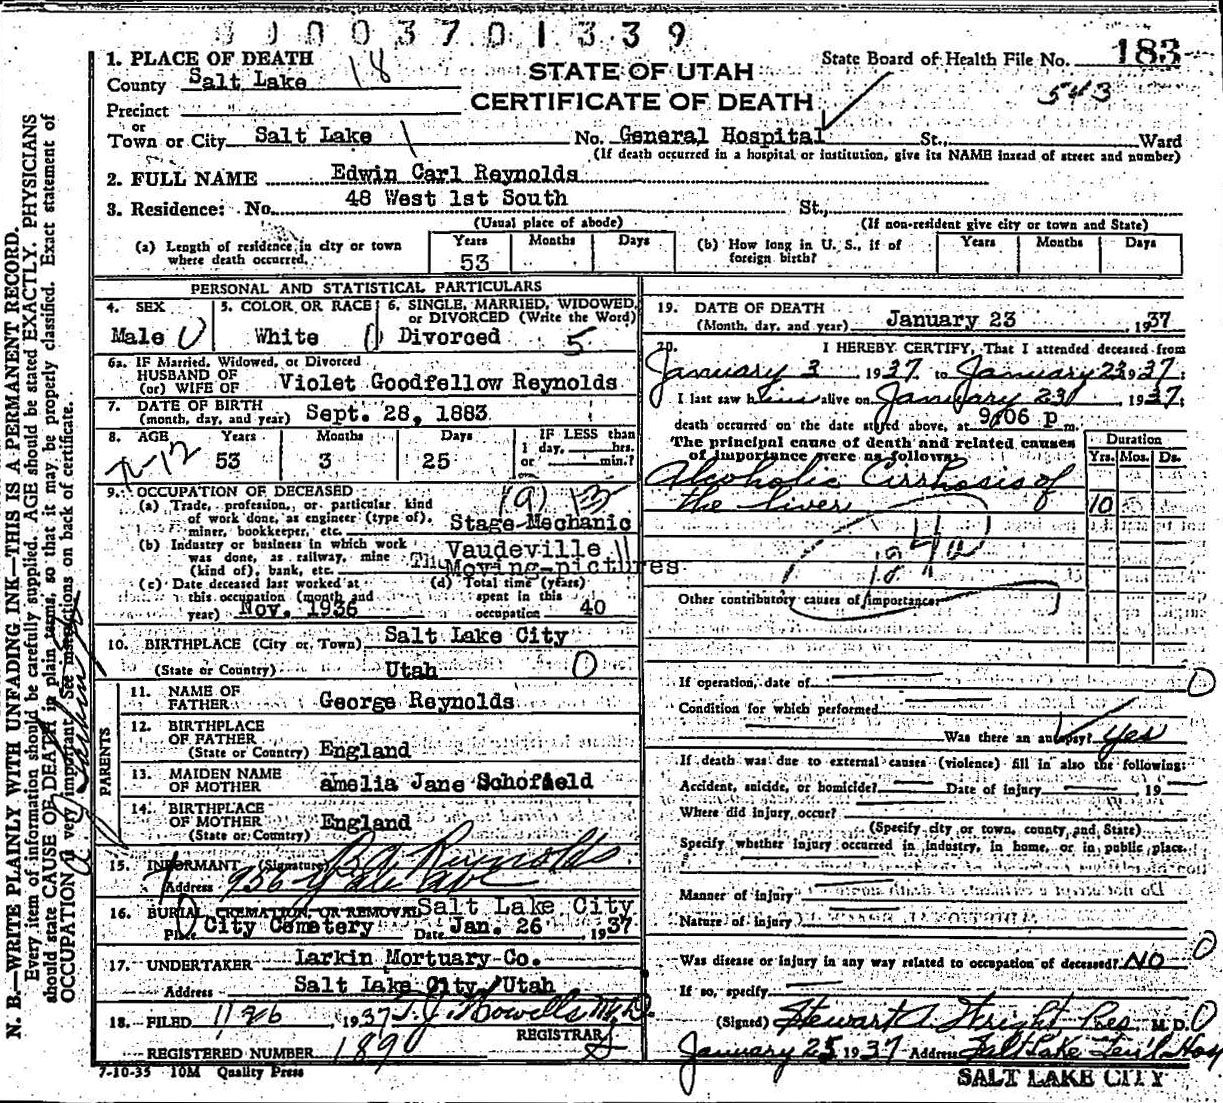 00003701339
1. PLACE OF DEATH
County Salt Lake 18
STATE OF UTAH
State Board of Health File No. 183
CERTIFICATE OF DEATH
543
Precinct
or
Town or City Salt Lake No. General Hospital St., Ward
(If death occurred in a hospital or institution, give its NAME instead of street and number)
2. FULL NAME Edwin Carl Reynolds
3. Residence: No. 48 West 1st South St.,
(Usual place of abode) (If non-resident give city or town and State)
(a) Length of residence in city or town where death occurred. Years 53 Months Days
(b) How long in U. S., if of foreign birth? Years Months Days
PERSONAL AND STATISTICAL PARTICULARS
4. SEX Male
5. COLOR OR RACE White
6. SINGLE, MARRIED, WIDOWED, or DIVORCED (Write the Word) Divorced 5
6a. IF Married, Widowed, or Divorced
HUSBAND OF
(or) WIFE OF Violet Goodfellow Reynolds
7. DATE OF BIRTH
(month, day, and year) Sept. 28, 1883
8. AGE Years 53 Months 3 Days 25 IF LESS than 1 day, hrs. or min.?
9. OCCUPATION OF DECEASED
(a) Trade, profession, or particular kind
of work done, as engineer (type of),
miner, bookkeeper, etc. Stage Mechanic
(b) Industry or business in which work
was done, as railway, mine
(kind of), bank, etc. Vaudeville
Moving-pictures
(c) Date deceased last worked at
this occupation (month and
year) Nov. 1936
(d) Total time (years)
spent in this
occupation 40
10. BIRTHPLACE (City or Town) Salt Lake City
(State or Country) Utah
PARENTS
11. NAME OF
FATHER George Reynolds
12. BIRTHPLACE
OF FATHER
(State or Country) England
13. MAIDEN NAME
OF MOTHER amelia Jane Schofield
14. BIRTHPLACE
OF MOTHER
(State or Country) England
15. INFORMANT (Signature) Reynolds
Address 936 Yale Ave
16. BURIAL, CREMATION, OR REMOVAL Salt Lake City
Place City Cemetery Date Jan. 26, 1937
17. UNDERTAKER Larkin Mortuary Co.
Address Salt Lake City, Utah
18. FILED 1/26, 1937 T. J. Howells M.D.
REGISTRAR
REGISTERED NUMBER 189
7-10-35 10M Quality Press
19. DATE OF DEATH
(Month, day, and year) January 23, 1937
20. I HEREBY CERTIFY, That I attended deceased from
January 3 1937 to January 23 1937;
I last saw him alive on January 23, 1937;
death occurred on the date stated above, at 9:06 p m.
The principal cause of death and related causes
of importance were as follows:
Duration
Yrs. Mos. Ds.
Alcoholic Cirrhosis of
the liver 10
Other contributory causes of importance:
If operation, date of
Condition for which performed
Was there an autopsy? yes
If death was due to external causes (violence) fill in also the following:
Accident, suicide, or homicide? Date of injury , 19
Where did injury occur?
(Specify city or town, county, and State)
Specify whether injury occurred in industry, in home, or in public place.
Manner of injury
Nature of injury
Was disease or injury in any way related to occupation of deceased? NO
If so, specify
(Signed) Stewart A. Wright, Res., M. D.
January 25 1937 Address Salt Lake Gen'l Hosp
SALT LAKE CITY
N. B.—WRITE PLAINLY WITH UNFADING INK—THIS IS A PERMANENT RECORD.
Every item of information should be carefully supplied. AGE should be stated EXACTLY. PHYSICIANS
should state CAUSE OF DEATH in plain terms, so that it may be properly classified. Exact statement of
OCCUPATION is very important. See instructions on back of certificate.